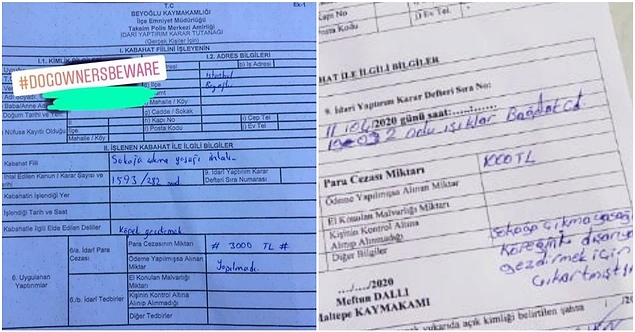 T.C
Ek-1
BEYOĞLU KAYMAKAMLIĞI
İlçe Emniyet Müdürlüğü
Taksim Polis Merkez Amirliği
İDARİ YAPTIRIM KARAR TUTANAĞI
(Gerçek Kişiler İçin)
I. KABAHAT FİİLİNİ İŞLEYENİN
I.1. KİMLİK
I.2. ADRES BİLGİLERİ
#DOGOWNERSBEWARE
b) İş Adresi
İstanbul
e) İlçe
Beyoğlu
Baba/Anne Adı
f) Mahalle / Köy
Doğum Tarihi ve Yeri
g) Cadde / Sokak
h) Kapı No
i) Cep Tel
Nüfusa Kayıtlı Olduğu
Mahalle / Köy
ı) Posta Kodu
j) Ev Tel
II. İŞLENEN KABAHAT İLE İLGİLİ BİLGİLER
Kabahat Fiili
Sokağa çıkma yasağı ihlali
İhlal Edilen Kanun / Karar Sayısı ve
1593/282
9. İdari Yaptırım Karar
Defteri Sıra Numarası
Kabahatin İşlendiği Yer
İşlendiği Tarih ve Saat
Kabahatle İlgili Elde Edilen Deliller
Köpek gezdirmek
6. Uygulanan
Yaptırımlar
6/a. İdari Para
Cezası
Para Cezasının Miktarı
# 3000 TL #
Ödeme Yapılmışsa Alınan
Miktar
Yapılmadı.
6./b. İdari Tedbirler
El Konulan Malvarlığı
Miktarı
Kişinin Kontrol Altına
Alınıp Alınmadığı
Diğer Tedbirler
Kapı No
Posta Kodu
j) Ev Tel
HAT İLE İLGİLİ BİLGİLER
9. İdari Yaptırım Karar Defteri Sıra No:
11/04/2020 günü saat:
Bağdat Cd.
Para Cezası Miktarı
1000 TL
Ödeme Yapılmışsa Alınan Miktar
El Konulan Malvarlığı Miktarı
Kişinin Kontrol Altına
Alınıp Alınmadığı
Diğer Bilgiler
Sokağa çıkma yasağı
Köpeğini dışarıya
gezdirmek için
çıkartmıştır
.../..../2020
Meftun DALLI
Maltepe KAYMAKAMI
yukarıda açık kimliği belirtilen şahsa